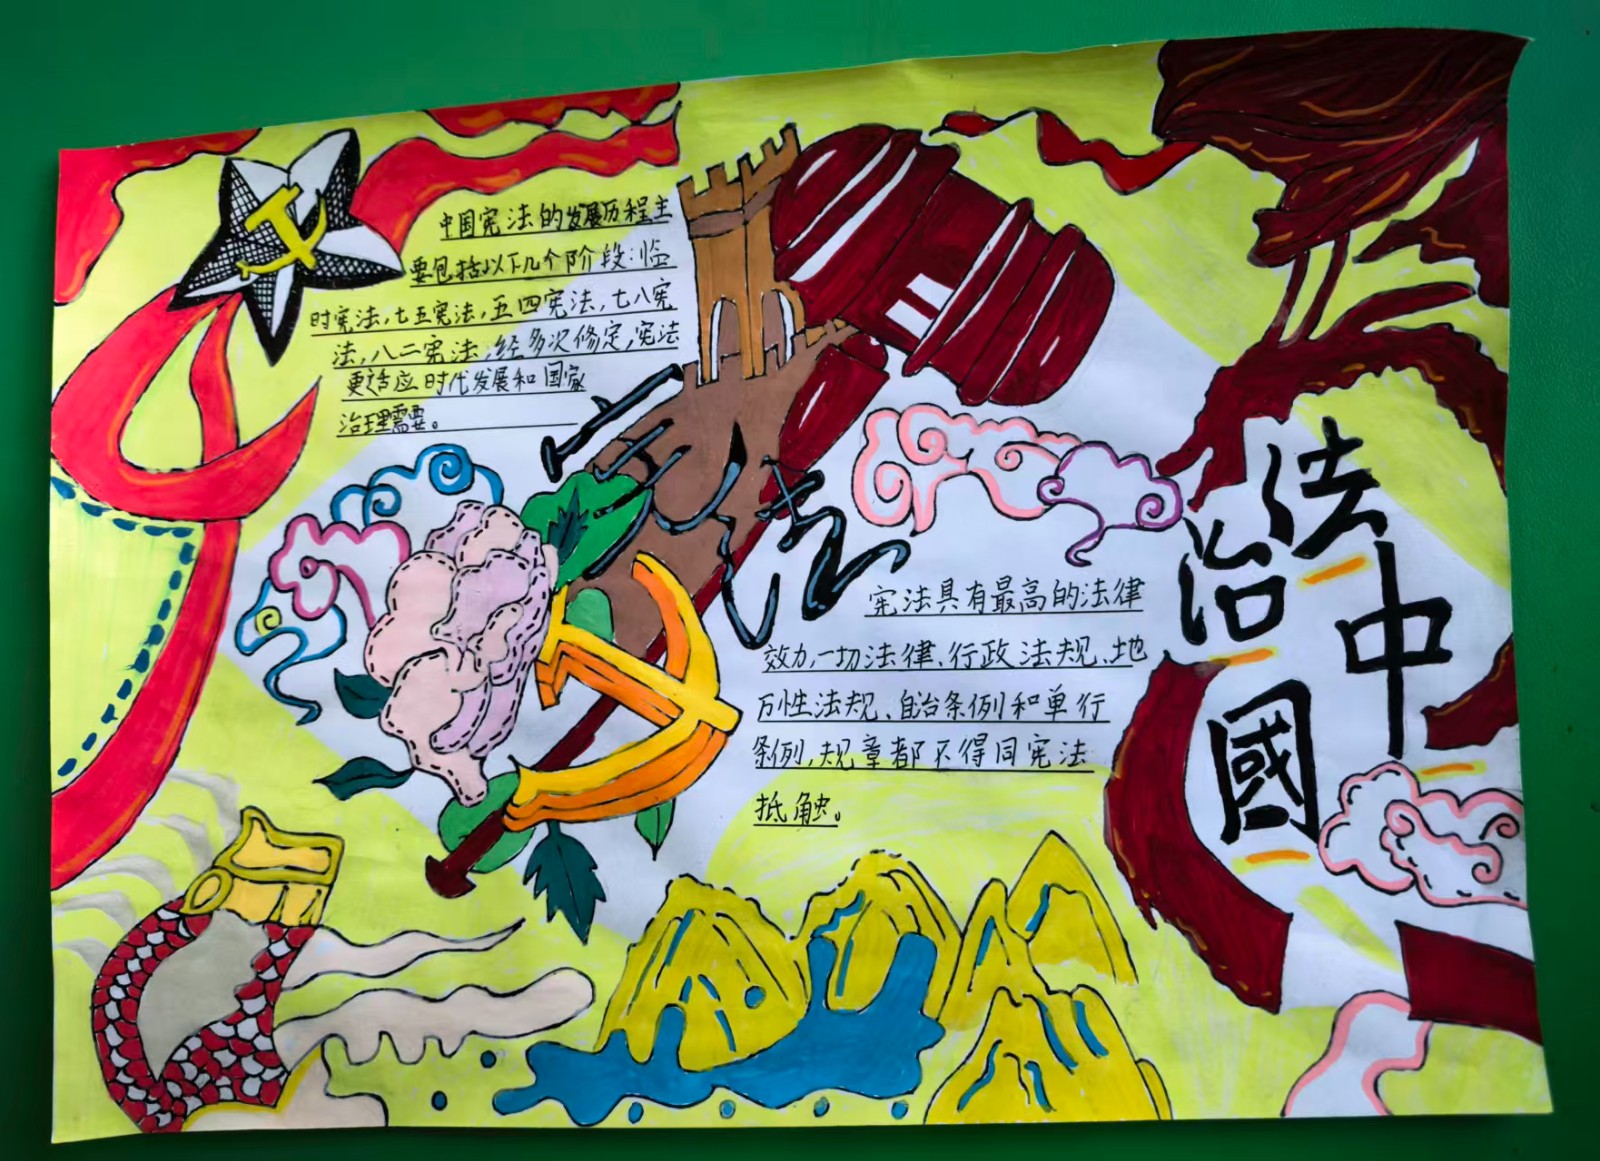 中国宪法的发展历程主
要包括以下几个阶段:临
时宪法,七五宪法,五四宪法,七八宪
法,八二宪法,经多次修定,宪法
更适应时代发展和国家
治理需要。
宪法
宪法具有最高的法律
效力,一切法律、行政法规、地
方性法规、自治条例和单行
条例,规章都不得同宪法
抵触。
法治
中國